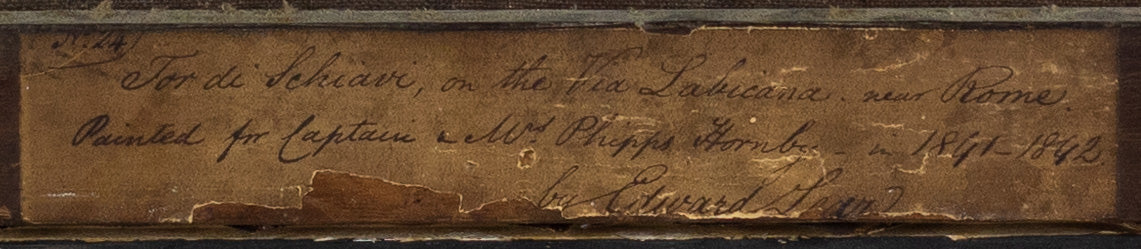 No. 24
Tor di Schiavi, on the Via Labicana. near Rome.
Painted for Captain & Mrs Phipps Hornby - in 1841-1842.
by Edward Lear